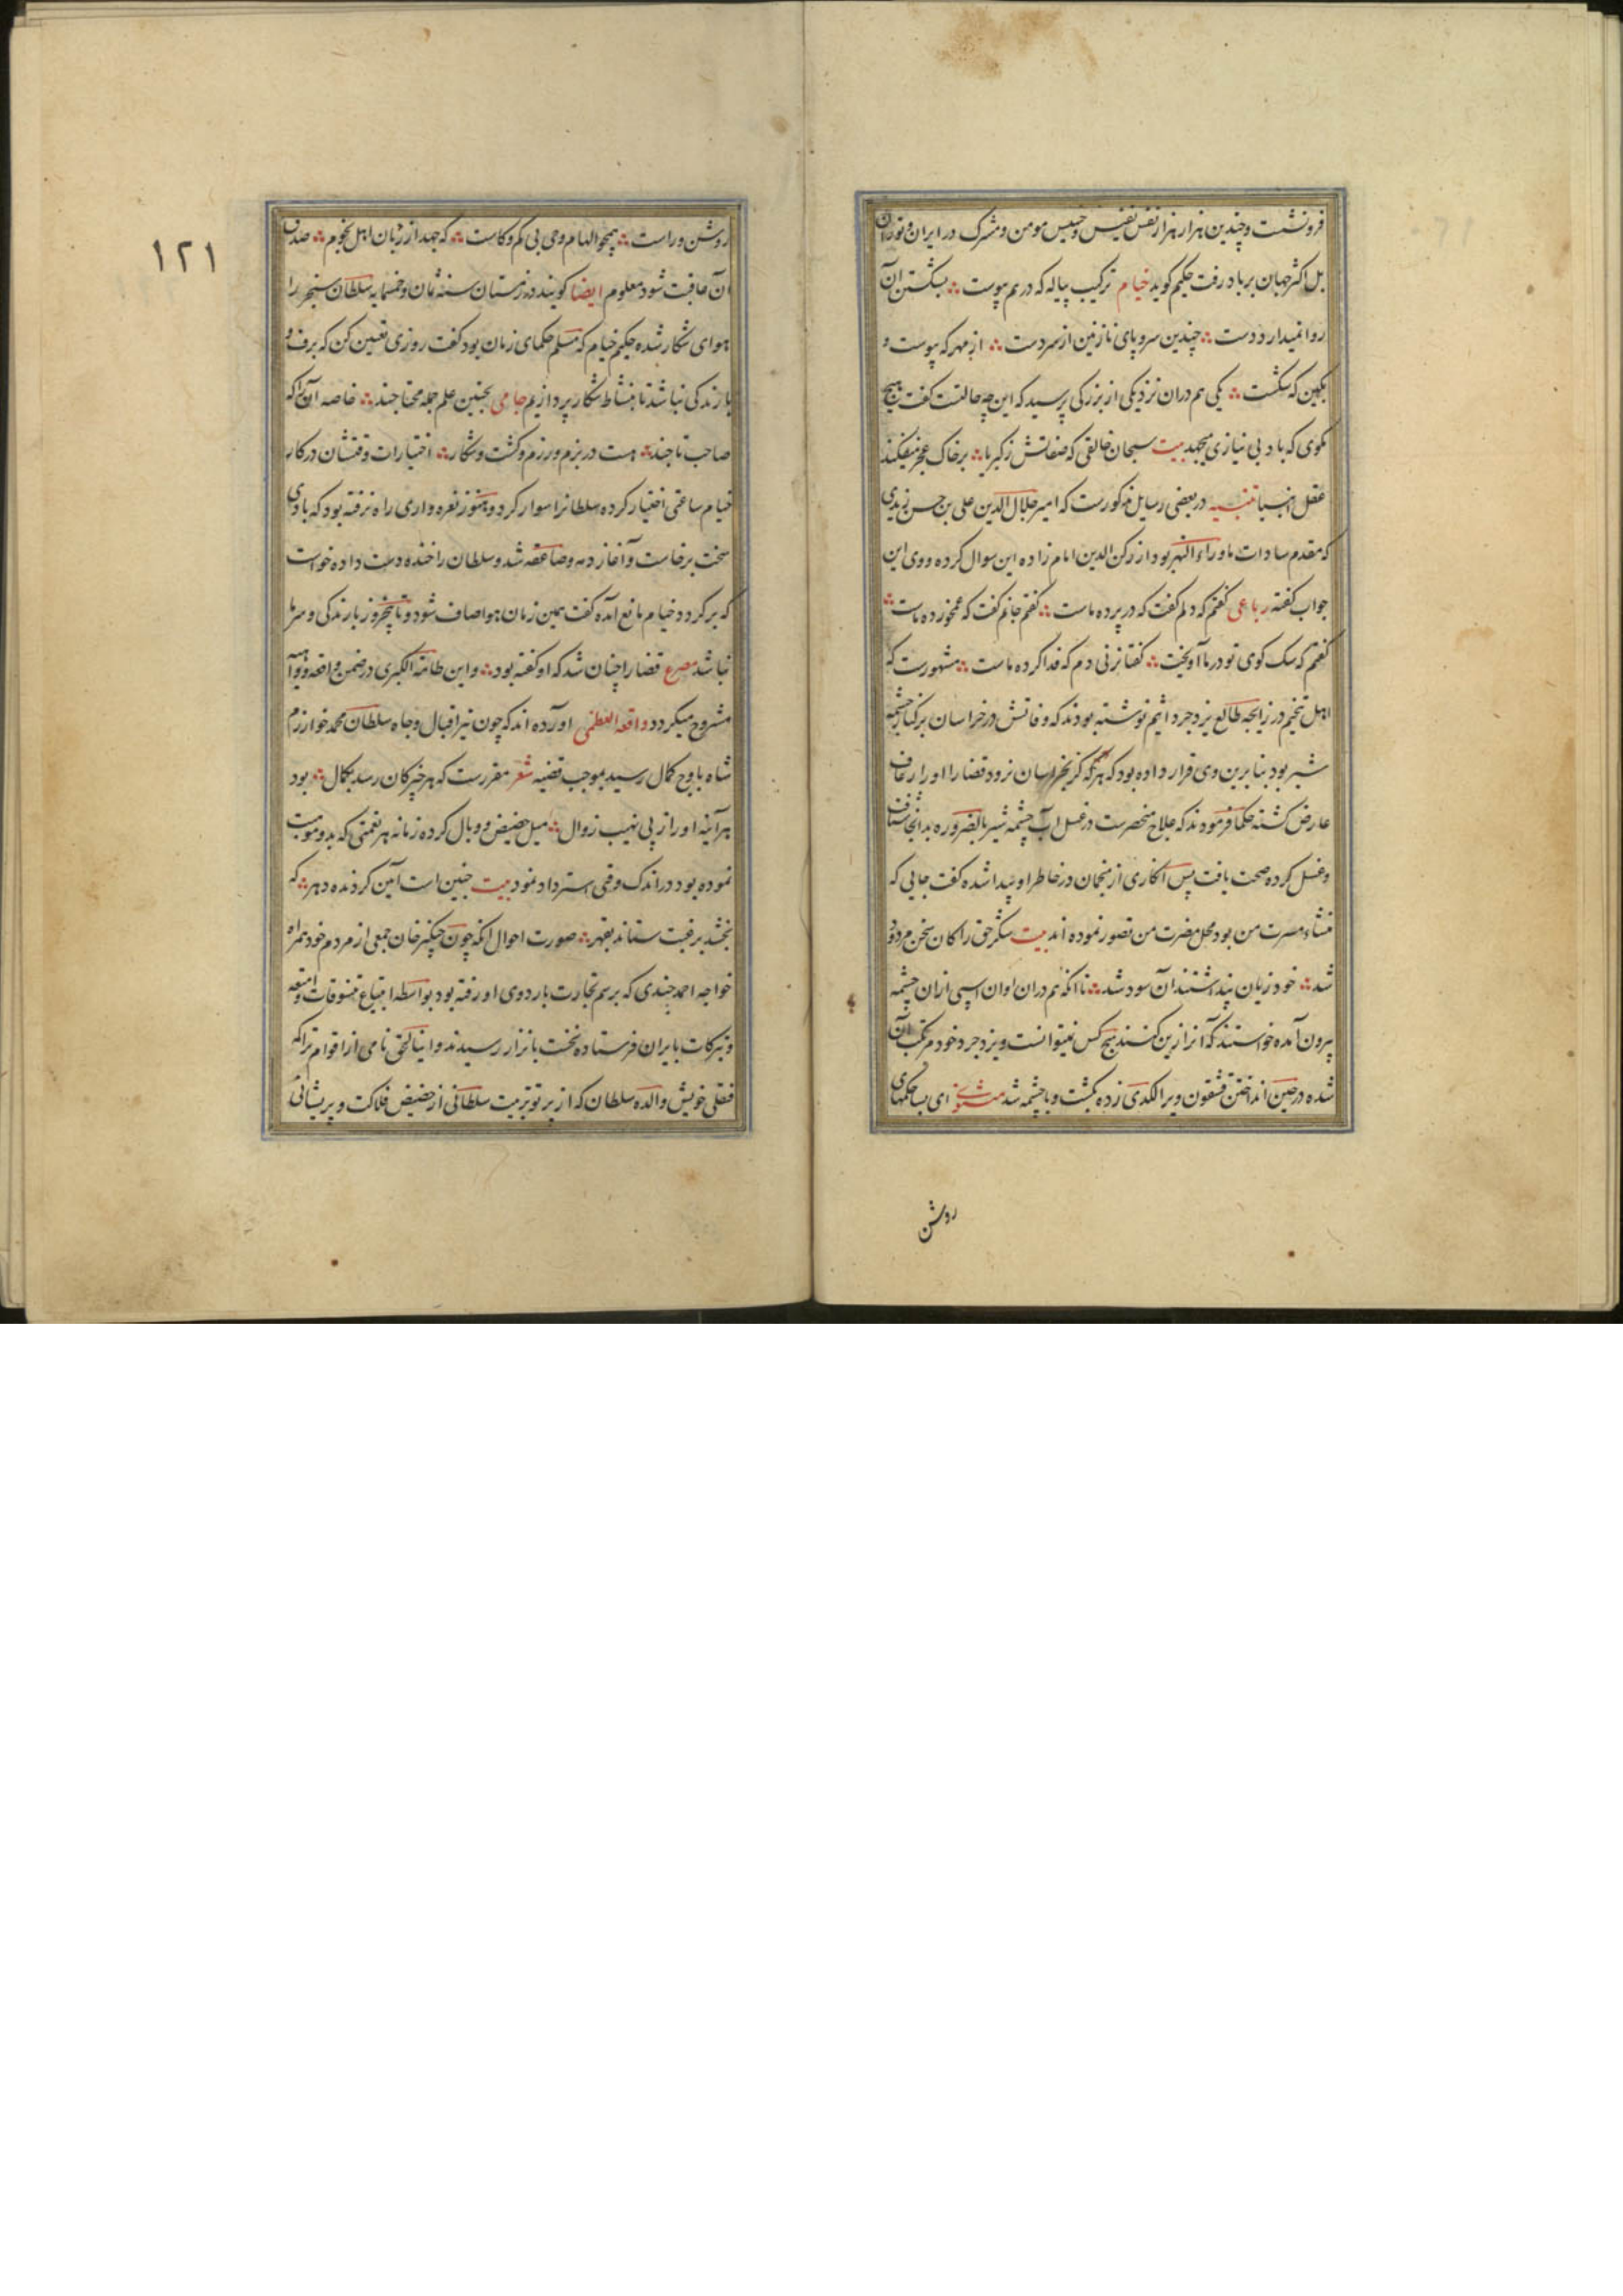 فرونشست و چندین هزار هزار نفس نفیس و خسیس مومن و مشرک در ایران و توران
بل اکثر جهان بر باد رفت حکیم کوید خیام ترکیب پیاله که درهم پیوست ؞ بشکستن آن
روا نمیدارد دست ؞ چندین سر و پای نازنین از سر دست ؞ از مهر که پیوست و
بکین که شکست ؞ یکی هم دران نزدیکی از بزرکی پرسید که این چه حالتست کفت هیچ
مکوی که باد بی نیازی میجهد بیت سبحان خالقی که صفاتش ز کبریا ؞ بر خاک عجز میفکند
عقل انبیا تنبیه در بعضی رسایل مذکورست که امیر جلال الدین علی بن حسن زیدی
که مقدم سادات ماوراء النهر بود از رکن الدین امام زاده این سوال کرده و وی این
جواب کفته رباعی کفتم که دلم کفت که در پرده ماست ؞ کفتم جانم کفت که غم خورده ماست ؞
کفتم که سک کوی تو در ما آویخت ؞ کفتا نزنی دم که فدا کرده ماست ؞ مشهورست که
اهل تنجیم در زایجه طالع یزدجرد اثیم نوشته بودند که وفاتش در خراسان بر کنار چشمه
شیر بود بنابرین وی قرار داده بود که هرکه کز بخراسان نرود قضا را او را رعاف
عارض کشته حکما فرمودند که علاج منحصرست در غسل آب چشمه شیر بالضروره بدانجا شتافت
و غسل کرده صحت یافت پس انکاری از منجمان در خاطر او پیدا شده کفت جایی که
منشاء مسرت من بود محل مضرت من تصور نموده اند بیت شکر حق را کان سخن مردود
شد ؞ خود زیان پنداشتند آن سود شد ؞ تا انکه هم دران اوان اسپی ازان چشمه
بیرون آمده خواستند که آنرا زین کنند هیچ کس نمیتوانست و یزدجرد خود مرتکب آن
شده در حین انداختن قشقون ویرا لکدی زده بکشت و با چشمه شد مثنوی ای بسا حکمهای
روشن
۱۲۱
روشن و راست ؞ همچو الهام و وحی بی کم و کاست ؞ که جهد از زبان اهل نجوم ؞ صدق
آن عاقبت شود معلوم ایضا کویند در زمستان سنه ثمان و خمسمایه سلطان سنجر را
هوای شکار شده حکیم خیام که مسلم حکمای زمان بود کفت روزی تعین کن که برف و
بارندکی نباشد تا بنشاط شکار پردازیم جامی بچنین علم جمله محتاجند ؞ خاصه آن را که
صاحب تاجند ؞ هست در بزم و رزم و کشت و شکار ؞ اختیارات وقتشان در کار
خیام ساعتی اختیار کرده سلطانرا سوار کرد و هنوز نعره واری راه نرفته بود که بادی
سخت برخاست و آغاز دمه و صاعقه شد و سلطان را خنده دست داده خواست
که برکردد خیام مانع آمده کفت همین زمان هوا صاف شود و تا پنج روز بارندکی و سرما
نباشد مصرع قضا را چنان شد که او کفته بود ؞ و این طامة الکبری در ضمن واقعه
مشروح میکردد واقعه العظمی آورده اند که چون نیر اقبال و جاه سلطان محمد خوارزم
شاه باوج کمال رسید بموجب قضیه شعر مقررست که هر خیر کان رسد بکمال ؞ بود
هرآینه او را ز پی نهیب زوال ؞ میل حضیض و وبال کرده زمانه هر نعمتی که بدو موهبت
نموده بود در اندک وقتی استرداد نمود بیت چنین است آیین کردنده دهر ؞ که
بخشد برغبت ستاند بقهر ؞ صورت احوال انکه چون چنکیز خان جمعی از مردم خود همراه
خواجه احمد جندی که برسم تجارت باردوی او رفته بود بواسطه ابتیاع تنسوقات و امتعه
و تبرکات بایران فرستاده نخست باترار رسیدند و اینالجق نامی از اقوام ترا که
قنقلی خویش والده سلطان که از پرتو تربیت سلطانی از حضیض فلاکت و پریشانی